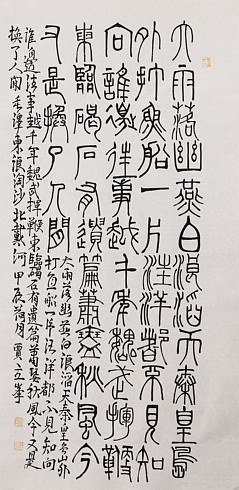 大雨落幽燕白浪滔天秦皇島
外打魚船一片汪洋都不見知
向誰邊往事越千年魏武揮鞭
東臨碣石有遺篇蕭瑟秋風今
又是換了人間
大雨落幽燕白浪滔天秦皇島外
打魚船一片汪洋都不見知向
誰邊往事越千年魏武揮鞭東臨碣石有遺篇蕭瑟秋風今又是
換了人間毛澤東浪淘沙北戴河甲辰荷月賈峯